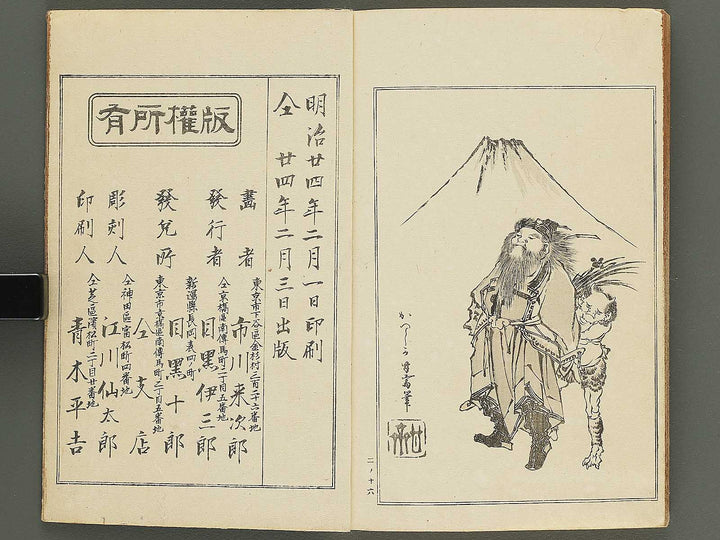 かつしか
筆
二ノ十六
明治廿四年二月一日印刷
仝 廿四年二月三日出版
版權所有
畫者
東京市下谷區金杉村三百二十六番地
市川来次郎
發行者
仝京橋區南傳馬町二丁目五番地
目黑伊三郎
發兌所
新潟縣長岡表四ノ町
目黑十郎
東京市京橋區南傳馬町二丁目五番地
仝支店
彫刻人
仝神田區富松町四番地
江川仙太郎
印刷人
仝芝區濱松町二丁目廿番地
青木平吉